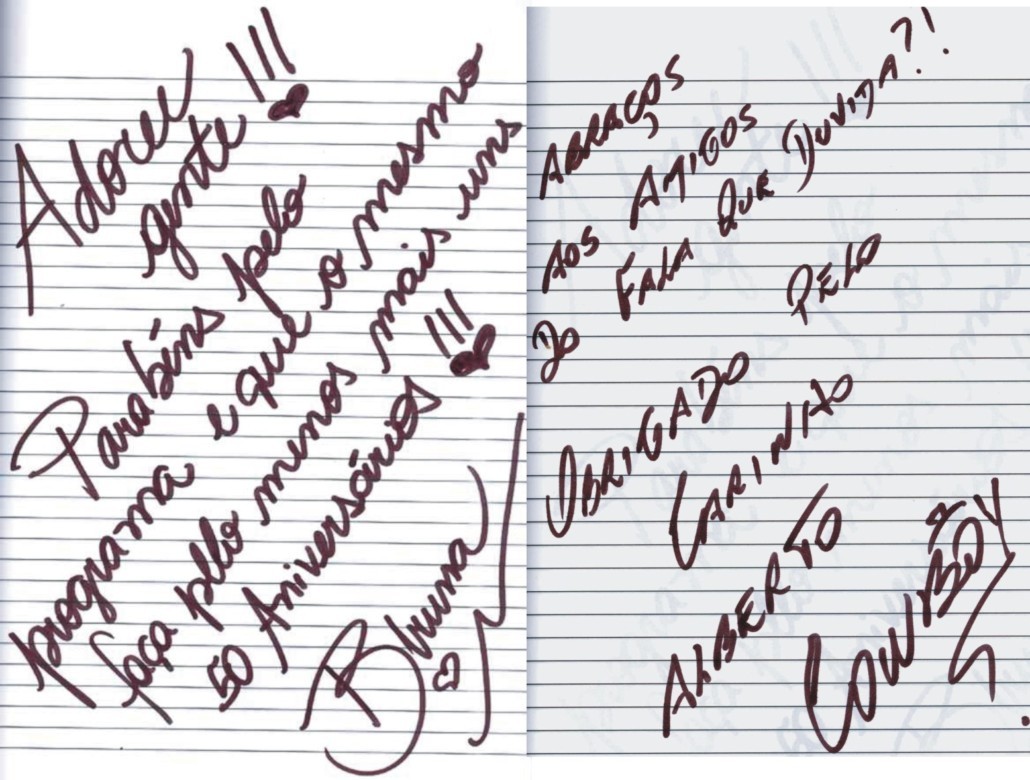 Adorei
gente!!!
Parabéns pelo
programa e que o mesmo
faça pelo menos mais uns
50 Aniversários!!!
Bruna
ABRAÇOS
AOS AMIGOS
DO FALA QUE DUVIDA?!
OBRIGADO PELO
CARINHO
ALBERTO
COWBOY